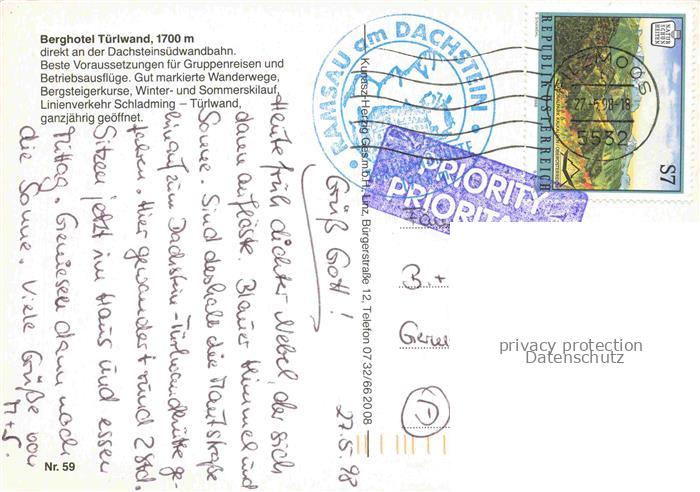 Berghotel Türlwand, 1700 m
direkt an der Dachsteinsüdwandbahn.
Beste Voraussetzungen für Gruppenreisen und
Betriebsausflüge. Gut markierte Wanderwege,
Bergsteigerkurse, Winter- und Sommerskilauf,
Linienverkehr Schladming – Türlwand,
ganzjährig geöffnet.
Grüß Gott!
27.5.98
Heute früh dichter Nebel, der sich
dann auflöste. Blauer Himmel und
Sonne. Sind deshalb die Mautstraße
hinauf zum Dachstein-Türlwandhütte ge-
fahren. Hier gewandert rund 2 Std.
Sitzen jetzt im Haus und essen
Mittag. Geniesen dann noch
die Sonne. Viele Grüße von
M+S.
Nr. 59
Gesm.b.H., Linz, Bürgerstraße 12, Telefon 07 32/66 20 08
RAMSAU am DACHSTEIN
PRIORITY
REPUBLIK ÖSTERREICH
S7
NATUR
27.-5.98-18
5532
B.+
D
privacy protection
Datenschutz